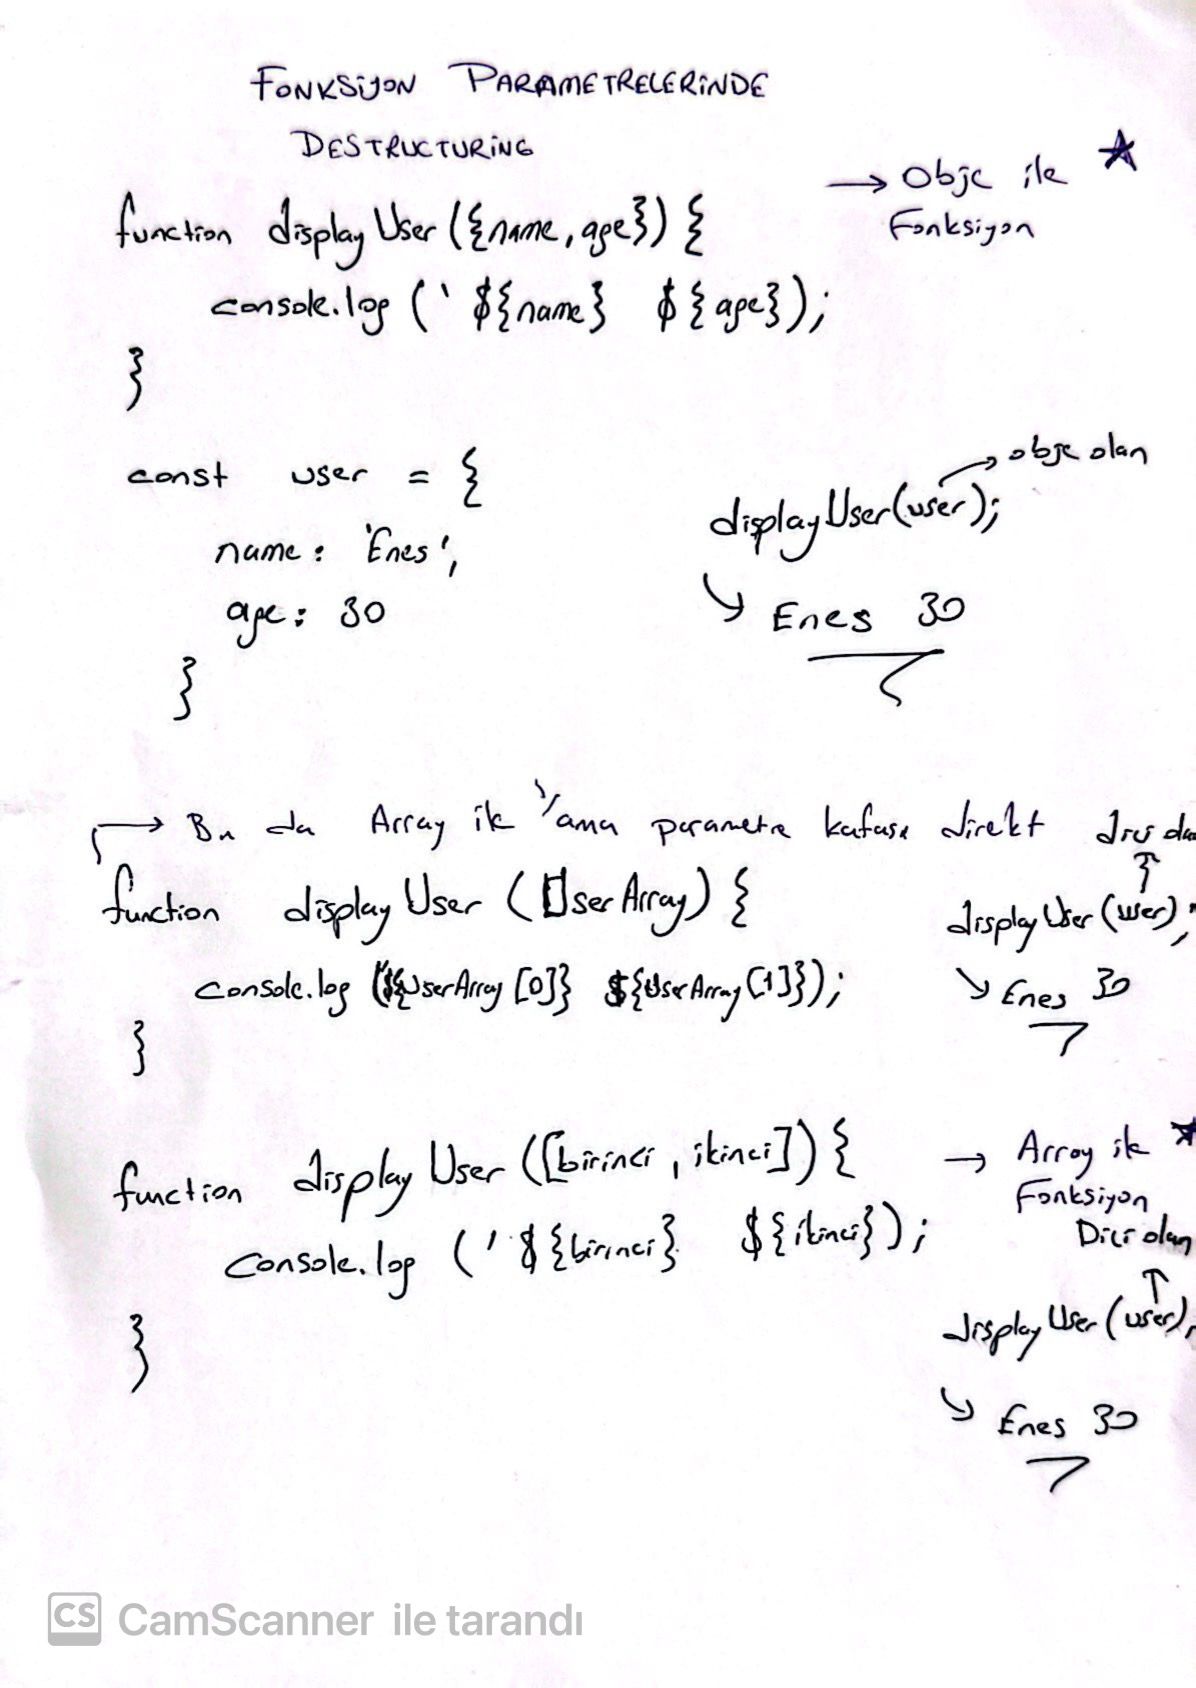 FONKSİYON PARAMETRELERİNDE
DESTRUCTURING
→ Obje ile
Fonksiyon
function displayUser ({name, age}) {
console.log (` ${name} ${age});
}
const user = {
name: 'Enes',
age: 30
}
→ obje olan
displayUser(user);
Enes 30
→ Bu da Array ile ama parametre kafası direkt
function displayUser (UserArray) {
console.log (`${UserArray[0]} ${UserArray[1]});
}
displayUser(user);
Enes 30
function displayUser ([birinci, ikinci]) {
console.log (` ${birinci} ${ikinci});
}
→ Array ile
Fonksiyon
Dizi olan
displayUser(user);
Enes 30
CS CamScanner ile tarandı